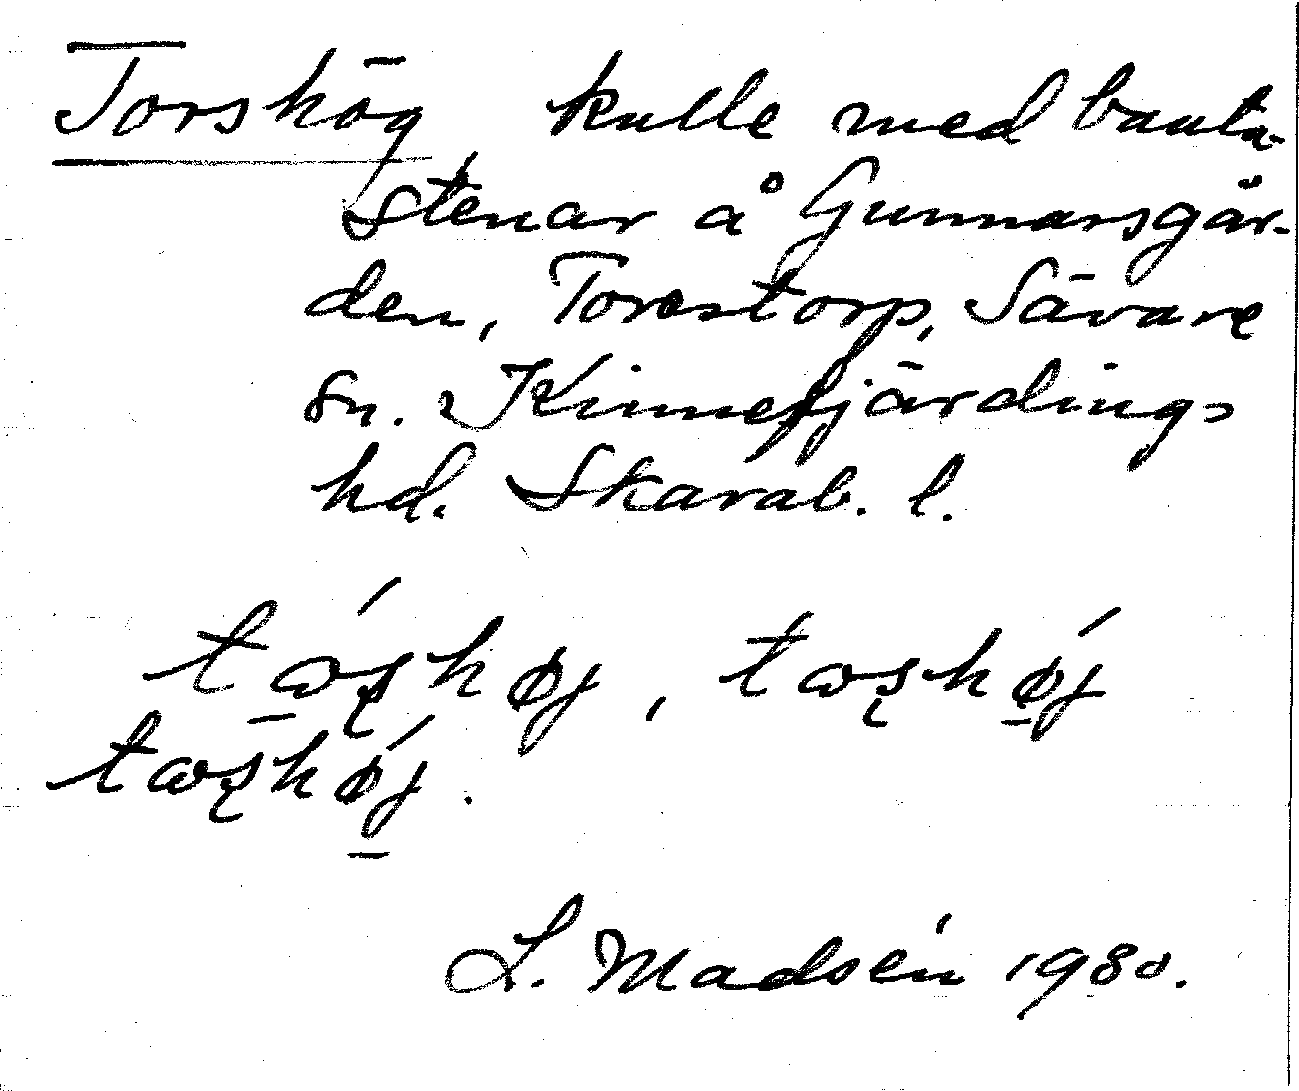 Torshög, kulle med bauta-
stenar å Gunnarsgår-
den, Torestorp, Sävare
sn. Kinnefjärdings
hd. Skarab. l.
tɷʂhøj, tɷʂhøj
tɷʂhøj.
L. Madsén 1980.